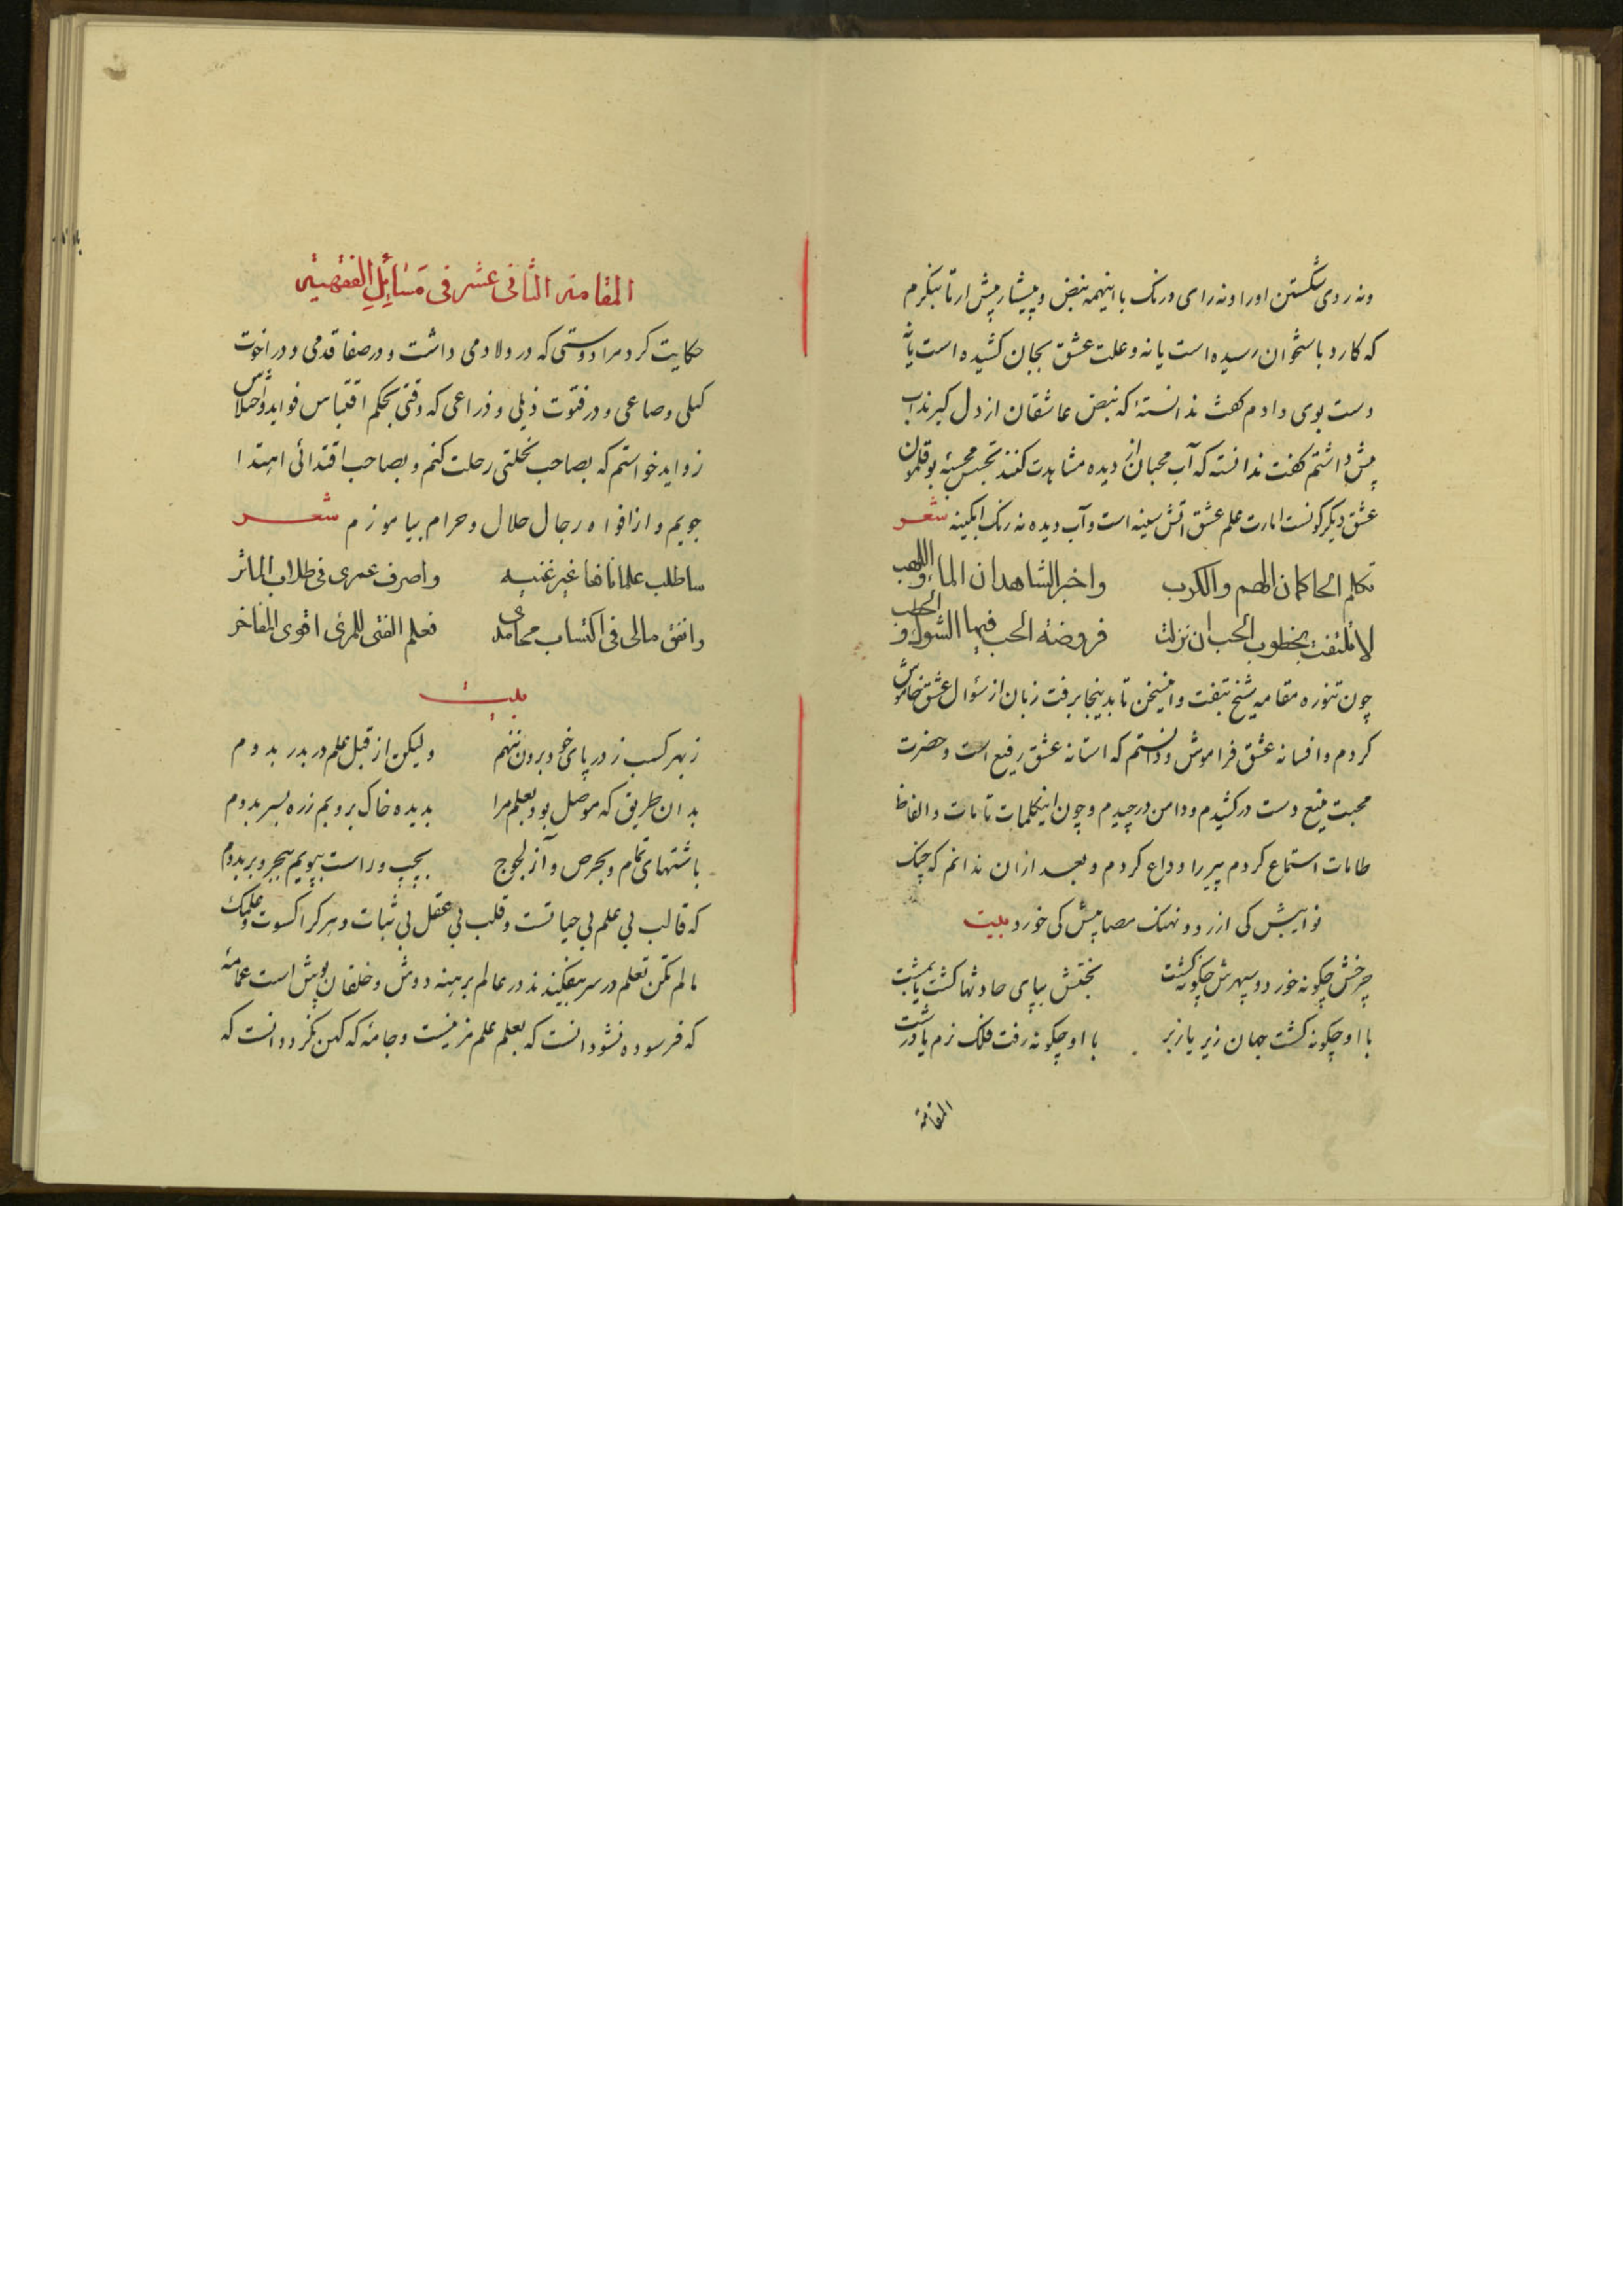 ونه روی شکستن اورا ونه رای ورنک با اینهمه نبض و پیشار پیش ارتا بنکرم
که کارد باستخوان رسیده است یا نه وعلت عشق بجان کشیده است یا نه
دست بوی دادم کفت ندانستهٔ که نبض عاشقان از دل کیرند آب
پیش داشتم کفت ندانسته که آب محبان از دیده مشاهدت کنند بوقلمون
عشق دیکر کونست امارت علم عشق آتش سینه است وآب دیده نه رنک ابکینه شعر
تکلم الحاکمان الهم والکرب واخبر الشاهدان الماء واللهب
لا تلتفت بخطوب الحب ان نزلت فروضة الحب فیها الشوک و
چون تنوره مقامه شیخ بتفت واینسخن تا بدینجا برفت زبان از سئوال عشق خاموش
کردم وافسانه عشق فراموش ودانستم که استانه عشق رفیع است وحضرت
محبت منیع دست درکشیدم ودامن درچیدم وچون اینکلمات تامات والفاظ
طامات استماع کردم پیررا وداع کردم وبعد ازان ندانم که چنک
نوایبش کی ازرد ونهنک مصایبش کی خورد بیت
چرخش چکونه خورد وسپهرش چکونه کشت بختش بپای حادثها کشت یا بمشت
با او چکونه کشت جهان زیر یا زبر با او چکونه رفت فلک نرم یا درشت
المقامة
المقامة الثانی عشر فی مسائل الفقهیة
حکایت کرد مرا دوستی که در ولا دمی داشت و درصفا قدمی و در اخوت
کیلی وصاعی و در فتوت ذیلی و ذراعی که وقتی بحکم اقتباس فواید و اختلاس
زواید خواستم که بصاحب نحلتی رحلت کنم وبصاحب اقتدائی اهتدا
جویم و از افواه رجال حلال وحرام بیاموزم شعر
ساطلب علما نافعا غیر غنیه واصرف عمری فی طلاب الماثر
وانفق مالی فی اکتساب محامدی فعلم الفتی للمرئ اقوی المفاخر
بیت
ز بهر کسب ز در پای خود برون ننهم ولیکن از قبل علم در بدر بدوم
بدان طریق که موصل بود بعلم مرا بدیده خاک بروبم زره بسر بدوم
باشتهای تمام وبحرص وآز لجوج بچپ و راست بپویم ببحر وبر بدوم
که قالب بی علم بی حیاتست وقلب بی عقل بی ثبات وهرکرا کسوت وعلمک
مالم تکن تعلم در سر نیفکنند در عالم برهنه دوش وخلقان پوش است عمامهٔ
که فرسوده نشود انست که بعلم علم مزینست وجامهٔ که کهن نکردد انست که